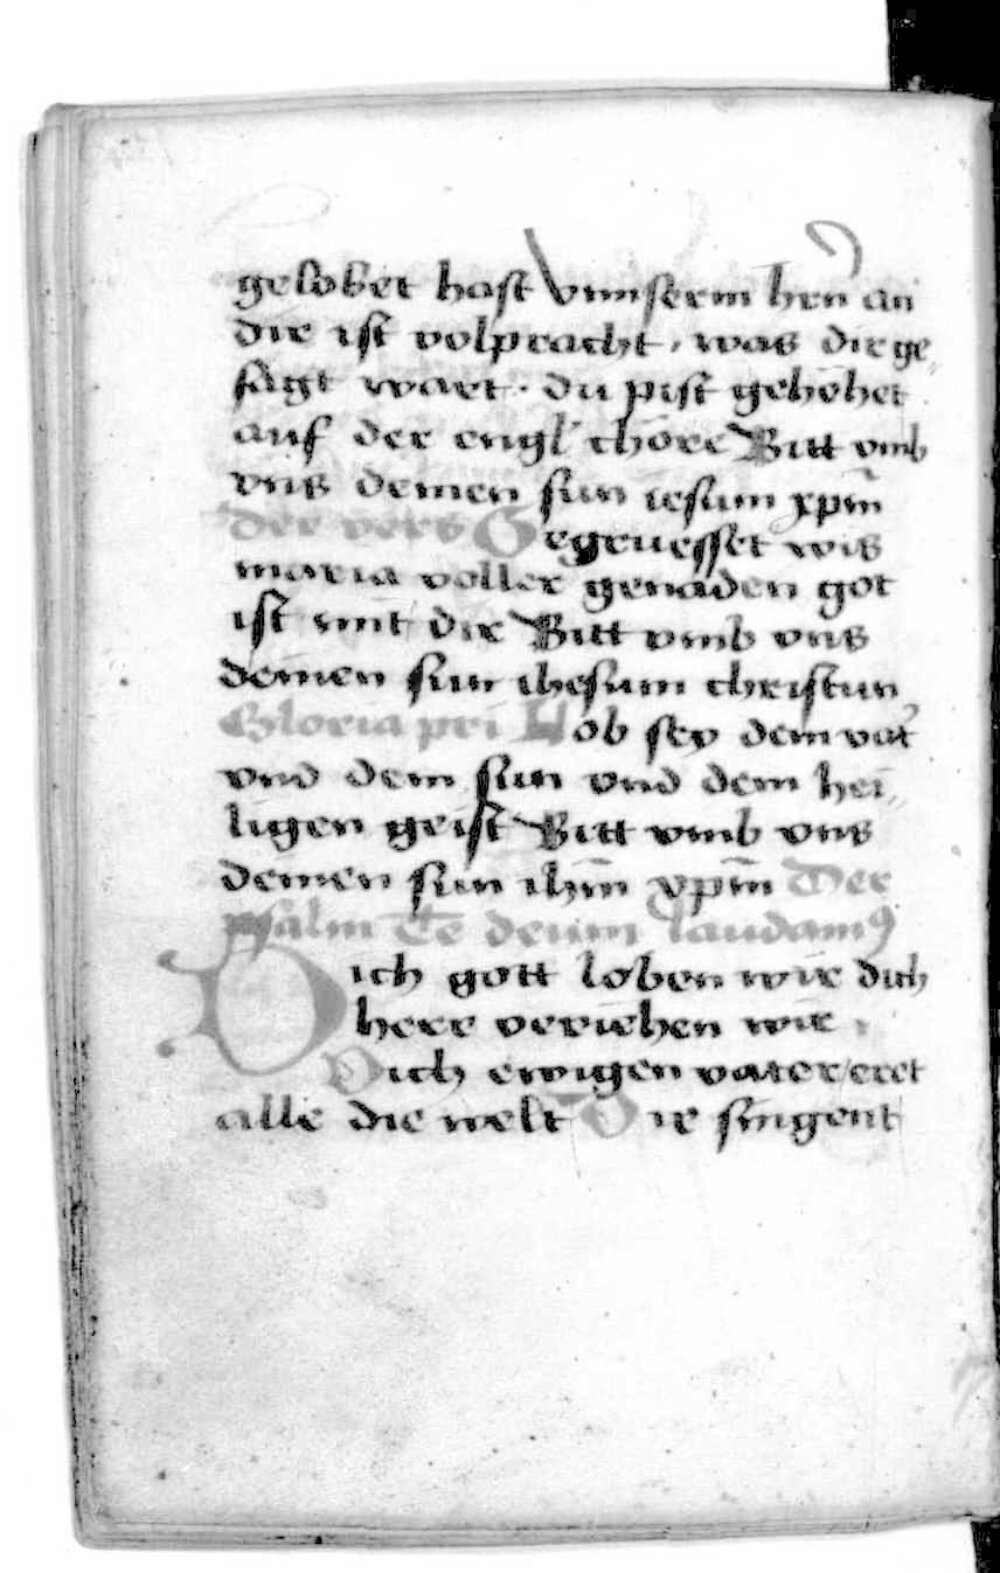 gelobet hast vnnserm hrn̄ an
dir ist volpracht · was dir ge„
sagt wart · du pist gehöhet
auf der engl' chöre Bitt vmb
vns deinen sun iesum xpm̄
der vers Gegruesset wis
maria voller genaden got
ist mit dir Bitt vmb vns
deinen sun ihesum christun
Gloria pri Lob sey dem vat'
vnd dem sun vnd dem hei„
ligen geist Bitt vmb vns
deinen sun ihm̄ xpm̄ Der
psalm Te deum laudamꝰ
Dich gott loben wir dich
herr veriehen wir
Dich ewigen vater eret
alle die welt Dir singent